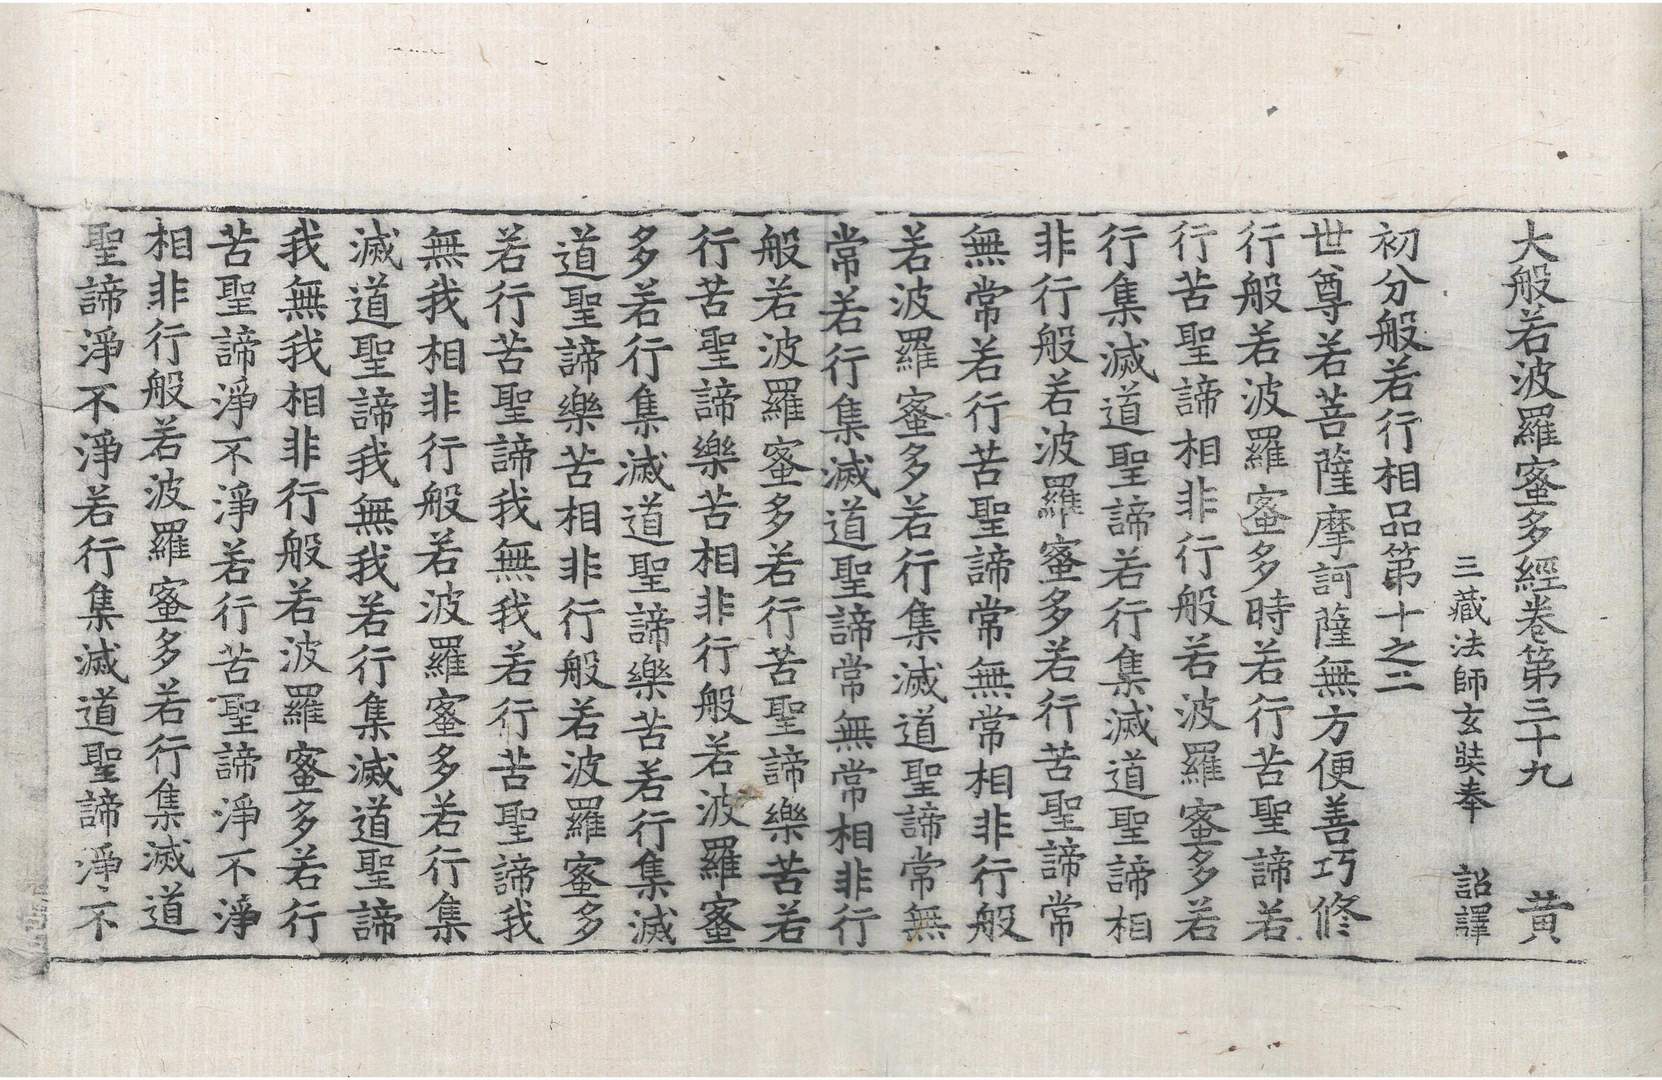 大般若波羅蜜多經卷第三十九 黄
三藏法師玄奘奉 詔譯
初分般若行相品第十之二
世尊若菩薩摩訶薩無方便善巧修
行般若波羅蜜多時若行苦聖諦若
行苦聖諦相非行般若波羅蜜多若
行集滅道聖諦若行集滅道聖諦相
非行般若波羅蜜多若行苦聖諦常
無常若行苦聖諦常無常相非行般
若波羅蜜多若行集滅道聖諦常無
常若行集滅道聖諦常無常相非行
般若波羅蜜多若行苦聖諦樂苦若
行苦聖諦樂苦相非行般若波羅蜜
多若行集滅道聖諦樂苦若行集滅
道聖諦樂苦相非行般若波羅蜜多
若行苦聖諦我無我若行苦聖諦我
無我相非行般若波羅蜜多若行集
滅道聖諦我無我若行集滅道聖諦
我無我相非行般若波羅蜜多若行
苦聖諦淨不淨若行苦聖諦淨不淨
相非行般若波羅蜜多若行集滅道
聖諦淨不淨若行集滅道聖諦淨不